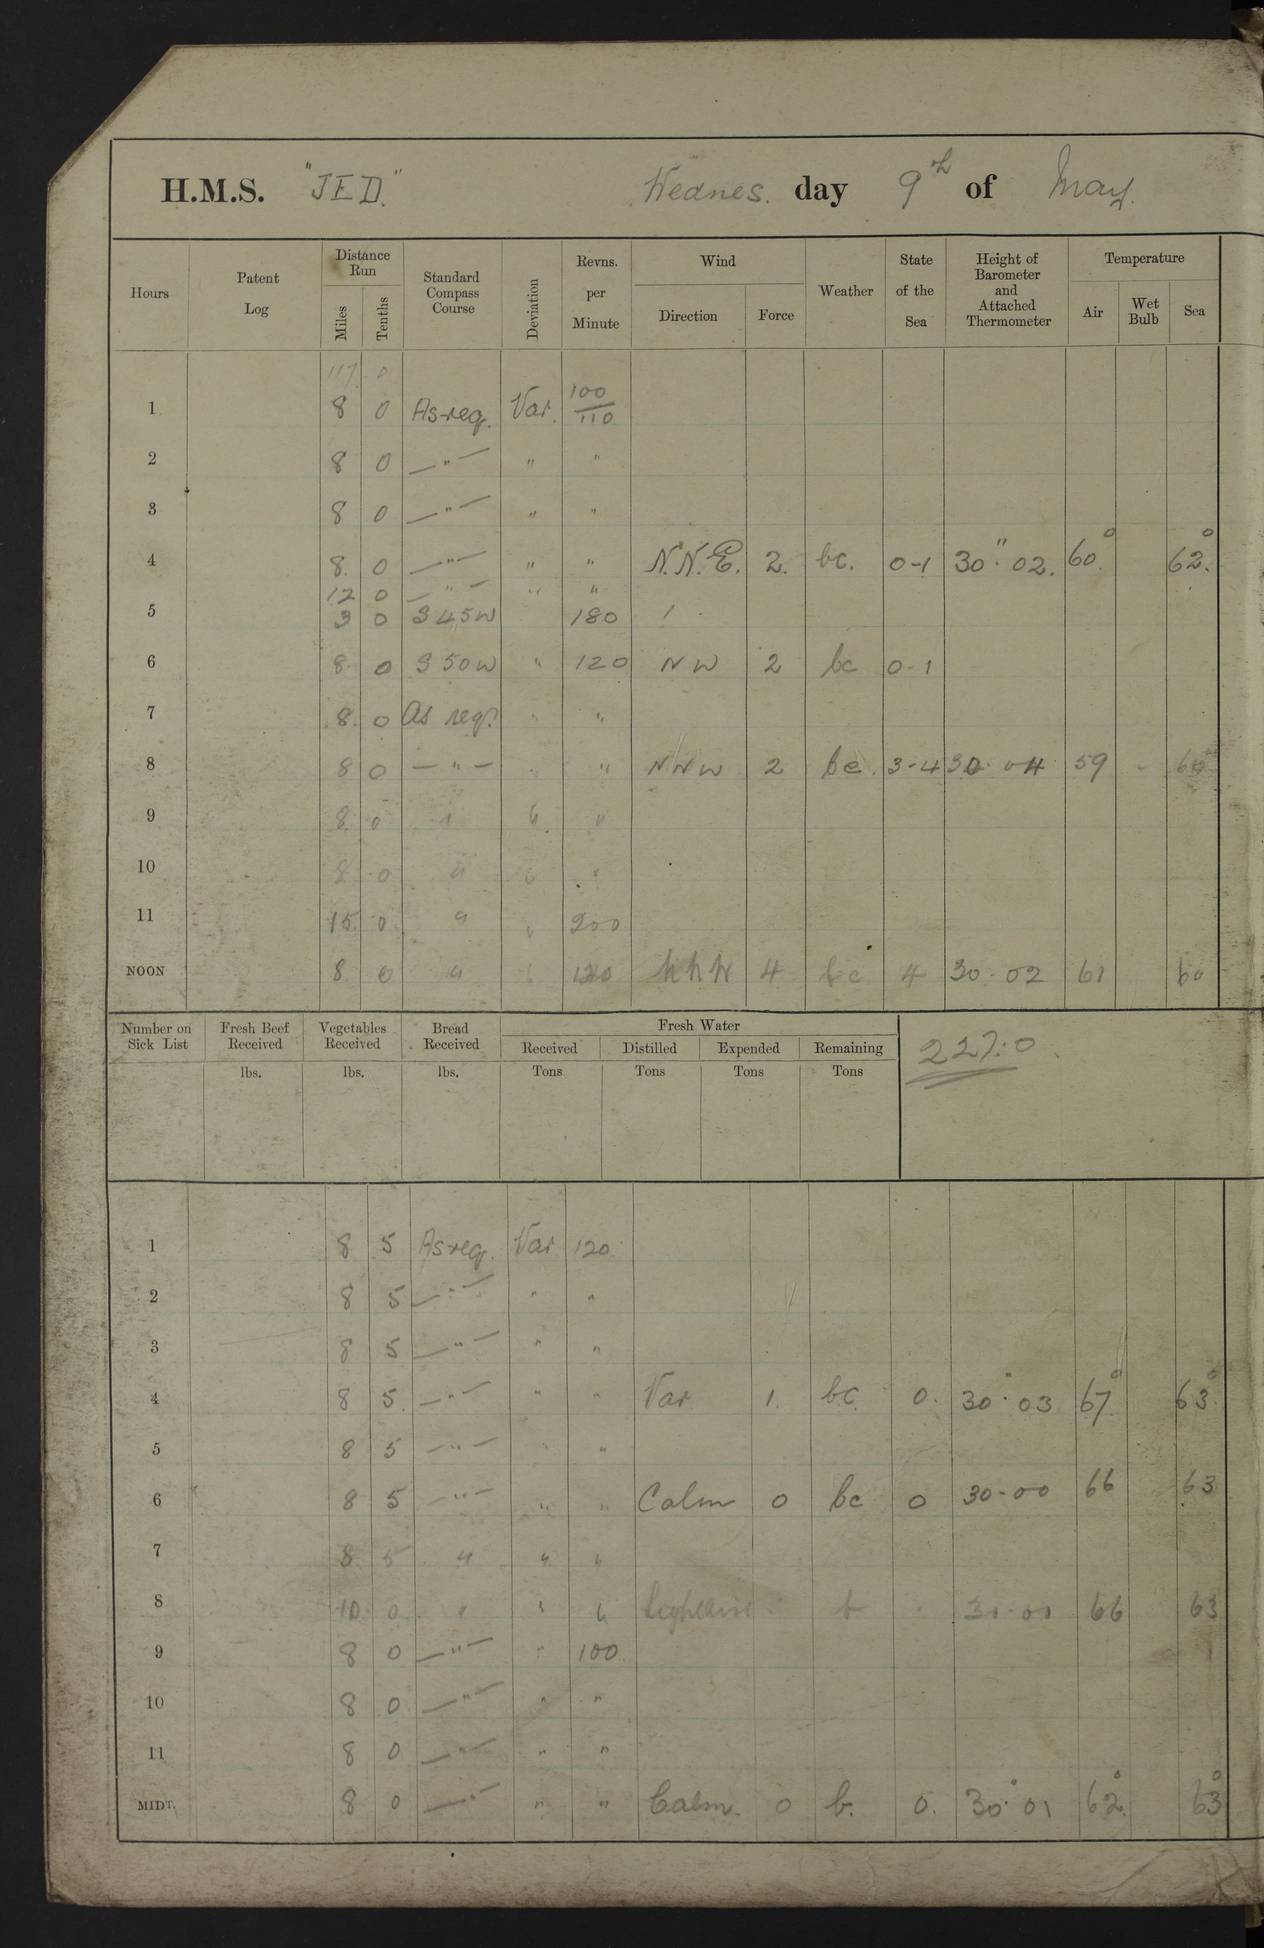 H.M.S. "JED." Wednes. day 9th of May.
Hours Patent Log Distance Run Miles Tenths Standard Compass Course Deviation Revns. per Minute Wind Direction Force Weather State of the Sea Height of Barometer and Attached Thermometer Temperature Air Wet Bulb Sea
117 0
1 8 0 As req. Var. 100/110
2 8 0 —"— " "
3 8 0 —"— " "
4 8. 0 —"— " " N.N.E. 2. bc. 0-1 30".02. 60° 62.°
12 0 —"— " "
5 3 0 S45W 180
6 8 0 S50W " 120 NW 2 bc 0-1
7 8. 0 As req. " "
8 8 0 —"— " " NNW 2 bc. 3-4 30.04 59 60
9 8. 0 " " "
10 8. 0 " " "
11 15. 0 " " 200
NOON 8 0 " " 120 NNW 4 bc 4 30.02 61 60
Number on Sick List Fresh Beef Received lbs. Vegetables Received lbs. Bread Received lbs. Fresh Water Received Tons Distilled Tons Expended Tons Remaining Tons
227.0
1 8 5 As req. Var 120
2 8 5 —"— " "
3 8 5 —"— " "
4 8 5. —"— " " Var 1. bc. 0. 30".03 67° 63°
5 8 5 —"— " "
6 8 5 —"— " " Calm 0 bc 0 30.00 66 63
7 8 5 " " "
8 10. 0 " " " b 30.00 66 63
9 8 0 —"— " 100
10 8 0 —"— " "
11 8 0 —"— " "
MIDT. 8 0 —"— " " Calm. 0 b. 0. 30°.01 62.° 63°